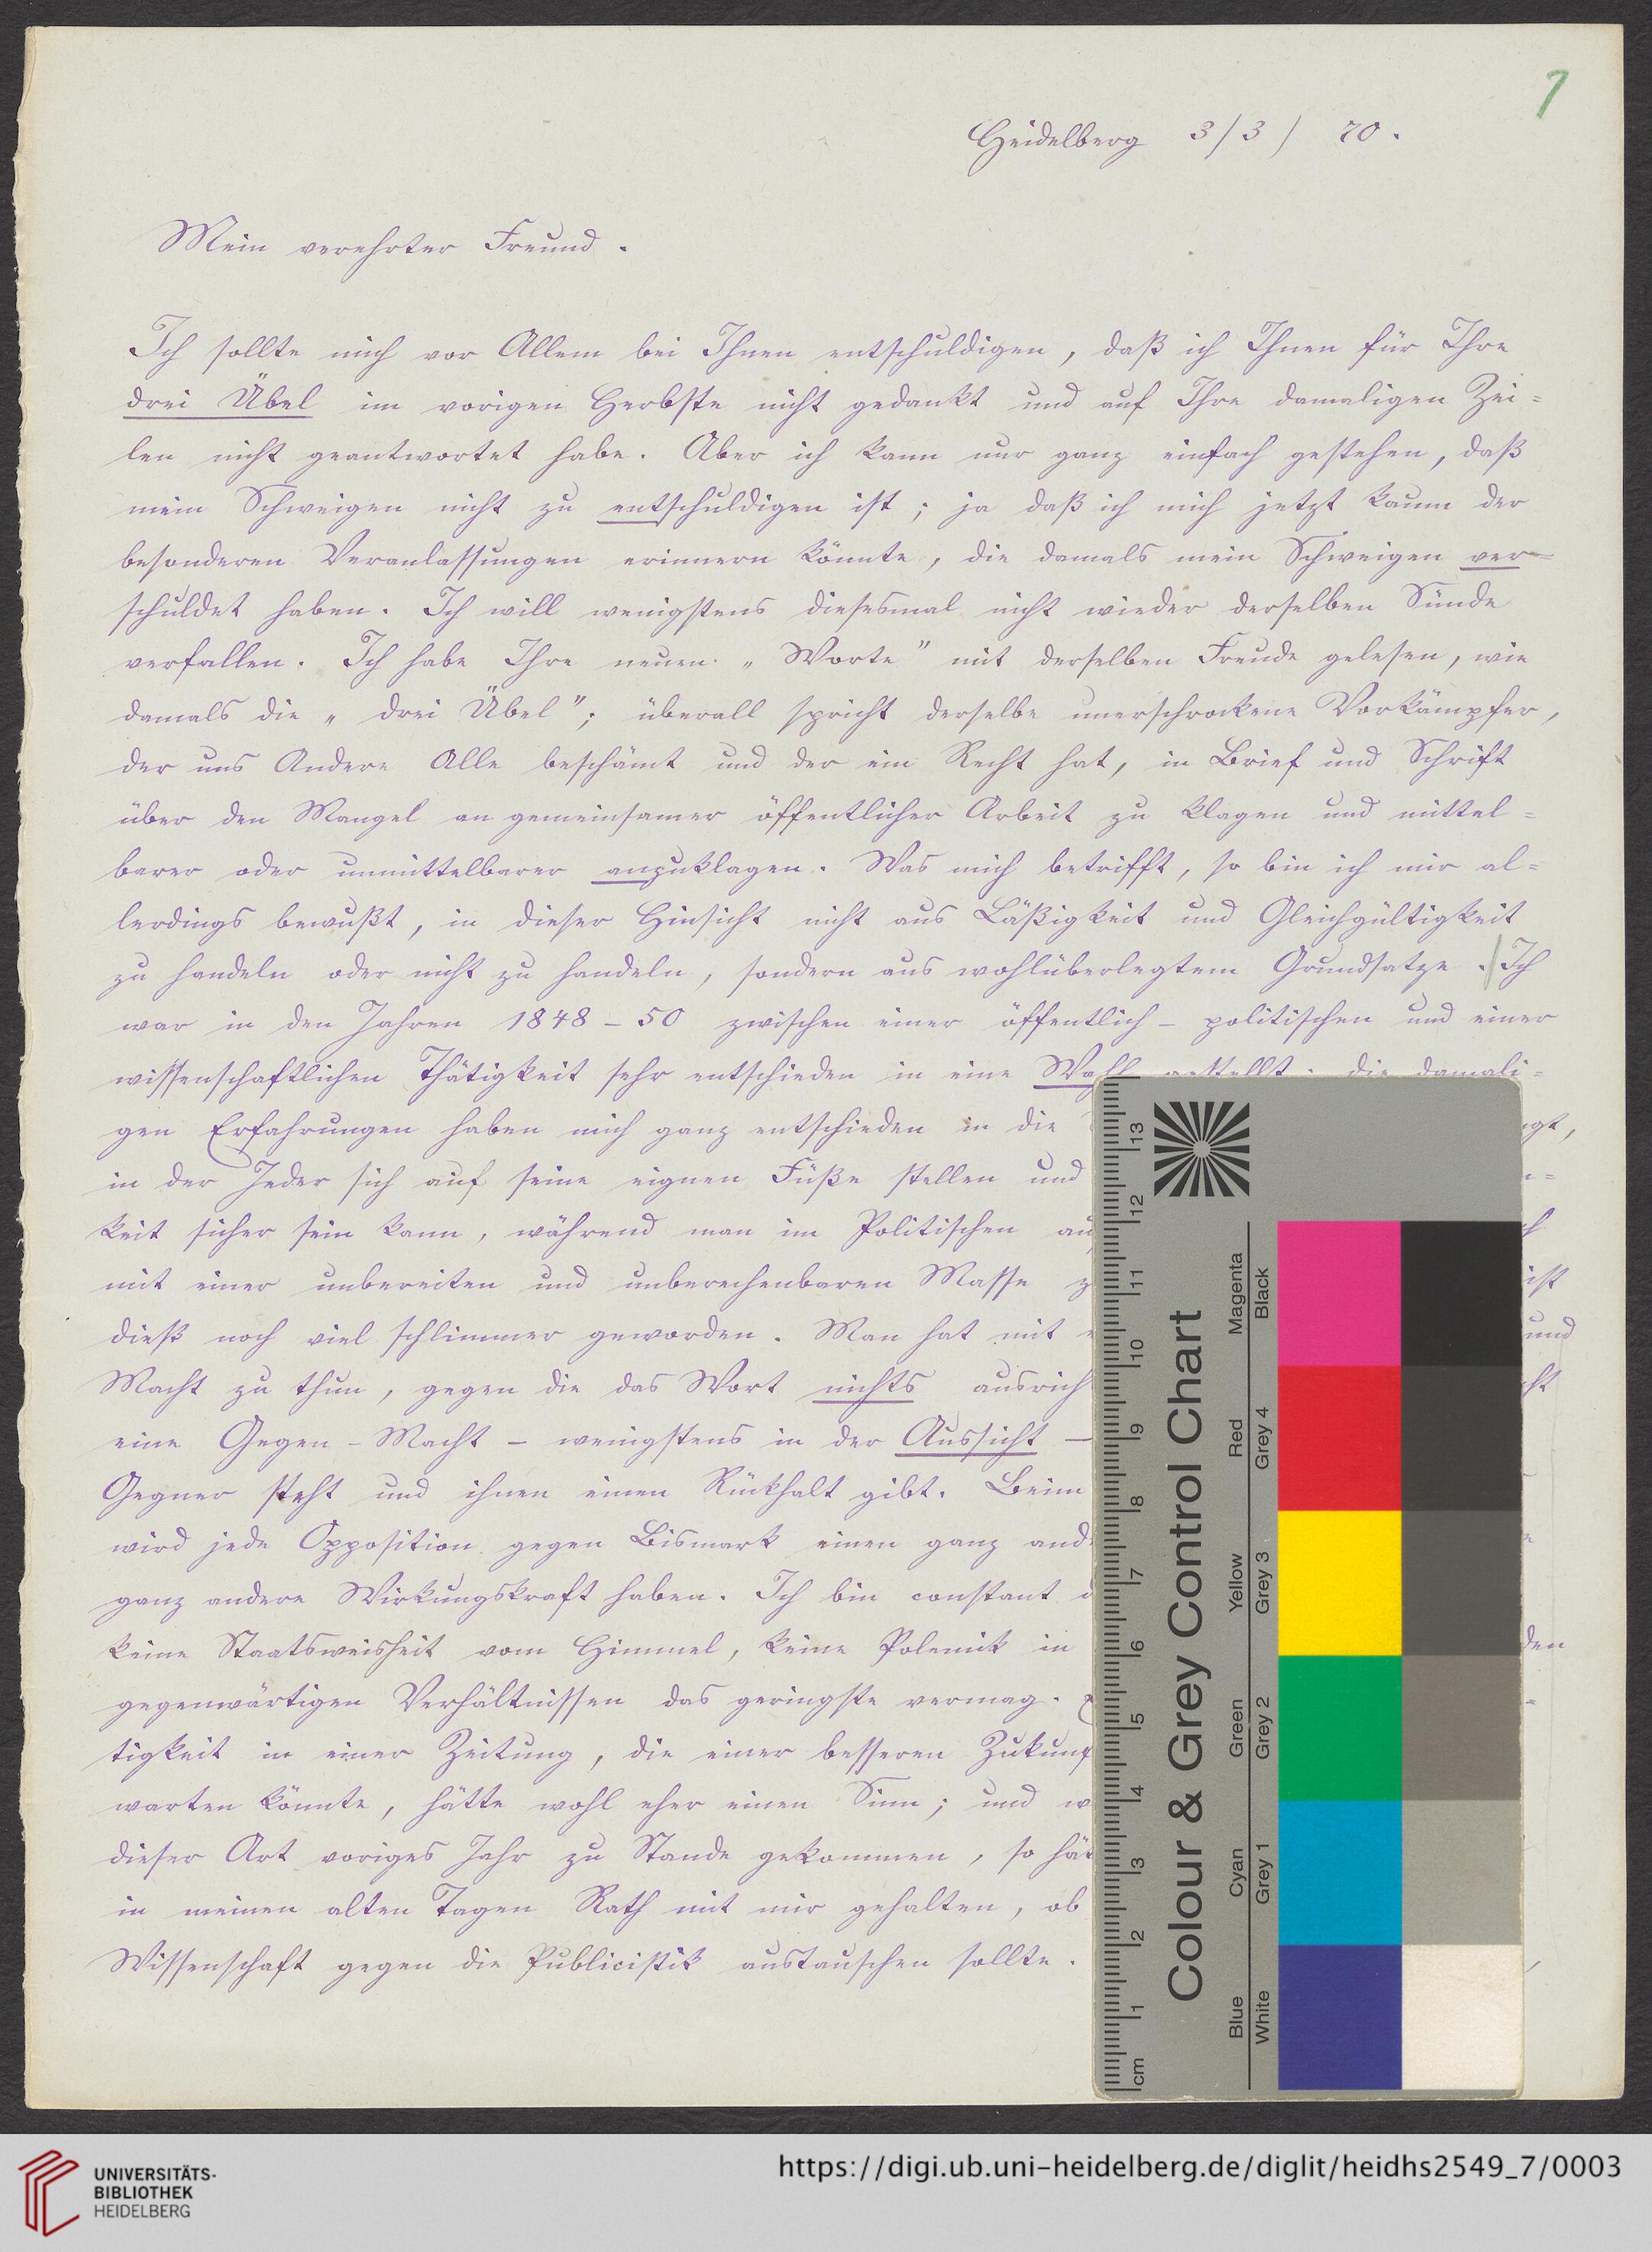 1
Heidelberg 3/3/ 70.
Mein verehrter Freund.
Ich sollte mich vor Allem bei Ihnen entschuldigen, daß ich Ihnen für Ihre
drei Übel im vorigen Herbste nicht gedankt und auf Ihre damaligen Zei=
len nicht geantwortet habe. Aber ich kann nur ganz einfach gestehen, daß
mein Schweigen nicht zu entschuldigen ist; ja daß ich mich jetzt kaum der
besonderen Veranlassungen erinnern könnte, die damals mein Schweigen ver=
schuldet haben. Ich will wenigstens diesesmal nicht wieder derselben Sünde
verfallen. Ich habe Ihre neuen „Worte" mit derselben Freude gelesen, wie
damals die „drei Übel"; überall spricht derselbe unerschrockene Vorkämpfer,
der uns Andere Alle beschämt und der ein Recht hat, in Brief und Schrift
über den Mangel an gemeinsamer öffentlicher Arbeit zu klagen und mittel=
barer oder unmittelbarer anzuklagen. Was mich betrifft, so bin ich mir al=
lerdings bewußt, in dieser Hinsicht nicht aus Läßigkeit und Gleichgültigkeit
zu handeln oder nicht zu handeln, sondern aus wohlüberlegtem Grundsatze. Ich
war in den Jahren 1848-50 zwischen einer öffentlich-politischen und einer
wissenschaftlichen Thätigkeit sehr entschieden in eine Wahl gestellt; die damali=
gen Erfahrungen haben mich ganz entschieden in die gt,
in der Jeder sich auf seine eignen Füße stellen und
keit sicher sein kann, während man im Politischen
mit einer unbereiten und unberechenbaren Masse ist
dieß noch viel schlimmer geworden. Man hat mit und
Macht zu thun, gegen die das Wort nichts ausrich
eine Gegen-Macht - wenigstens in der Aussicht —
Gegner steht und ihnen einen Rückhalt gibt. Beim
wird jede Opposition gegen Bismark einen ganz and
ganz andere Wirkungskraft haben. Ich bin constant
keine Staatsweisheit vom Himmel, keine Polemik in den
gegenwärtigen Verhältnissen das geringste vermag.
tigkeit in einer Zeitung, die einer besseren Zukunf
warten könnte, hätte wohl eher einen Sinn; und w
dieser Art voriges Jahr zu Stande gekommen, so hät
in meinen alten Tagen Rath mit mir gehalten, ob
Wissenschaft gegen die Publicistik austauschen sollte.
Colour & Grey Control Chart
Magenta Black
Red Grey 4
Yellow Grey 3
Green Grey 2
Cyan Grey 1
Blue White
cm 1 2 3 4 5 6 7 8 9 10 11 12 13
UNIVERSITÄTS-
BIBLIOTHEK
HEIDELBERG
https://digi.ub.uni-heidelberg.de/diglit/heidhs2549_7/0003